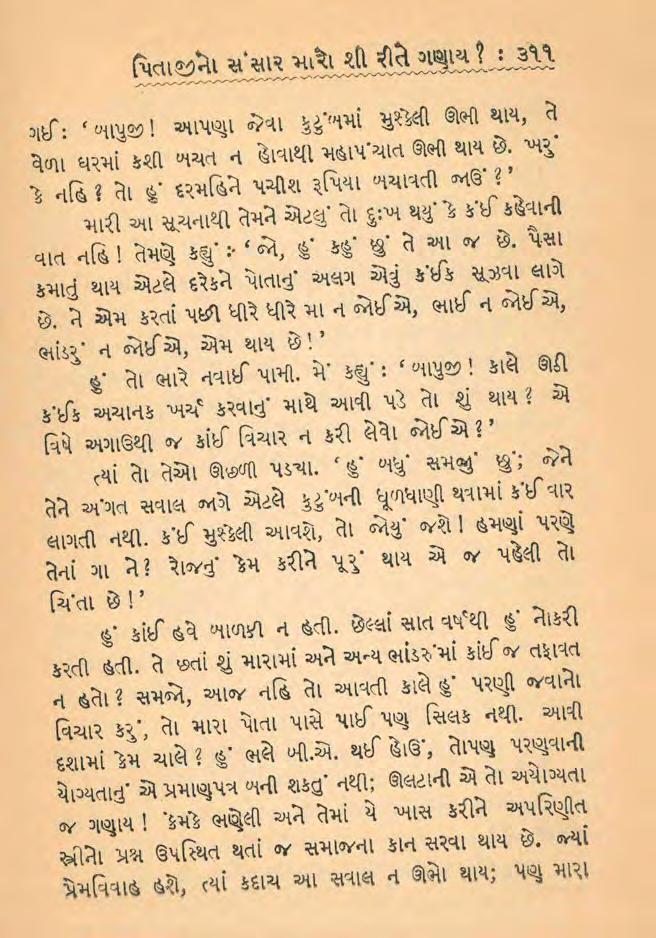 પિતાજીનો સંસાર મારો શી રીતે ગણાય? : ૩૧૧
ગઈ: ‘બાપુજી! આપણા જેવા કુટુંબમાં મુશ્કેલી ઊભી થાય, તે
વેળા ઘરમાં કશી બચત ન હોવાથી મહાપંચાત ઊભી થાય છે. ખરું
કે નહિ? તો હું દરમહિને પચીશ રૂપિયા બચાવતી જાઉં?’
મારી આ સૂચનાથી તેમને એટલું તો દુઃખ થયું કે કંઈ કહેવાની
વાત નહિ! તેમણે કહ્યું:- ‘જો, હું કહું છું તે આ જ છે. પૈસા
કમાતું થાય એટલે દરેકને પોતાનું અલગ એવું કંઈક સૂઝવા લાગે
છે. ને એમ કરતાં પછી ધીરે ધીરે મા ન જોઈએ, ભાઈ ન જોઈએ,
ભાંડરું ન જોઈએ, એમ થાય છે!’
હું તો ભારે નવાઈ પામી. મેં કહ્યું: ‘બાપુજી! કાલે ઊઠી
કંઈક અચાનક ખર્ચ કરવાનું માથે આવી પડે તો શું થાય? એ
વિષે અગાઉથી જ કાંઈ વિચાર ન કરી લેવો જોઈએ?’
ત્યાં તો તેઓ ઊછળી પડ્યા. ‘હું બધું સમજું છું; જેને
તેને અંગત સવાલ જાગે એટલે કુટુંબની ધૂળધાણી થવામાં કંઈ વાર
લાગતી નથી. કંઈ મુશ્કેલી આવશે, તો જોયું જશે! હમણાં પરણે
તેનાં ગા ને? રોજનું કેમ કરીને પૂરું થાય એ જ પહેલી તો
ચિંતા છે!’
હું કાંઈ હવે બાળકી ન હતી. છેલ્લાં સાત વર્ષથી હું નોકરી
કરતી હતી. તે છતાં શું મારામાં અને અન્ય ભાંડરુંમાં કાંઈ જ તફાવત
ન હતો? સમજો, આજ નહિ તો આવતી કાલે હું પરણી જવાનો
વિચાર કરું, તો મારા પોતા પાસે પાઈ પણ સિલક નથી. આવી
દશામાં કેમ ચાલે? હું ભલે બી.એ. થઈ હોઉં, તોપણ પરણવાની
યોગ્યતાનું એ પ્રમાણપત્ર બની શકતું નથી; ઊલટાની એ તો અયોગ્યતા
જ ગણાય! કેમકે ભણેલી અને તેમાં યે ખાસ કરીને અપરિણીત
સ્ત્રીનો પ્રશ્ન ઉપસ્થિત થતાં જ સમાજના કાન સરવા થાય છે. જ્યાં
પ્રેમવિવાહ હશે, ત્યાં કદાચ આ સવાલ ન ઊભો થાય; પણ મારા